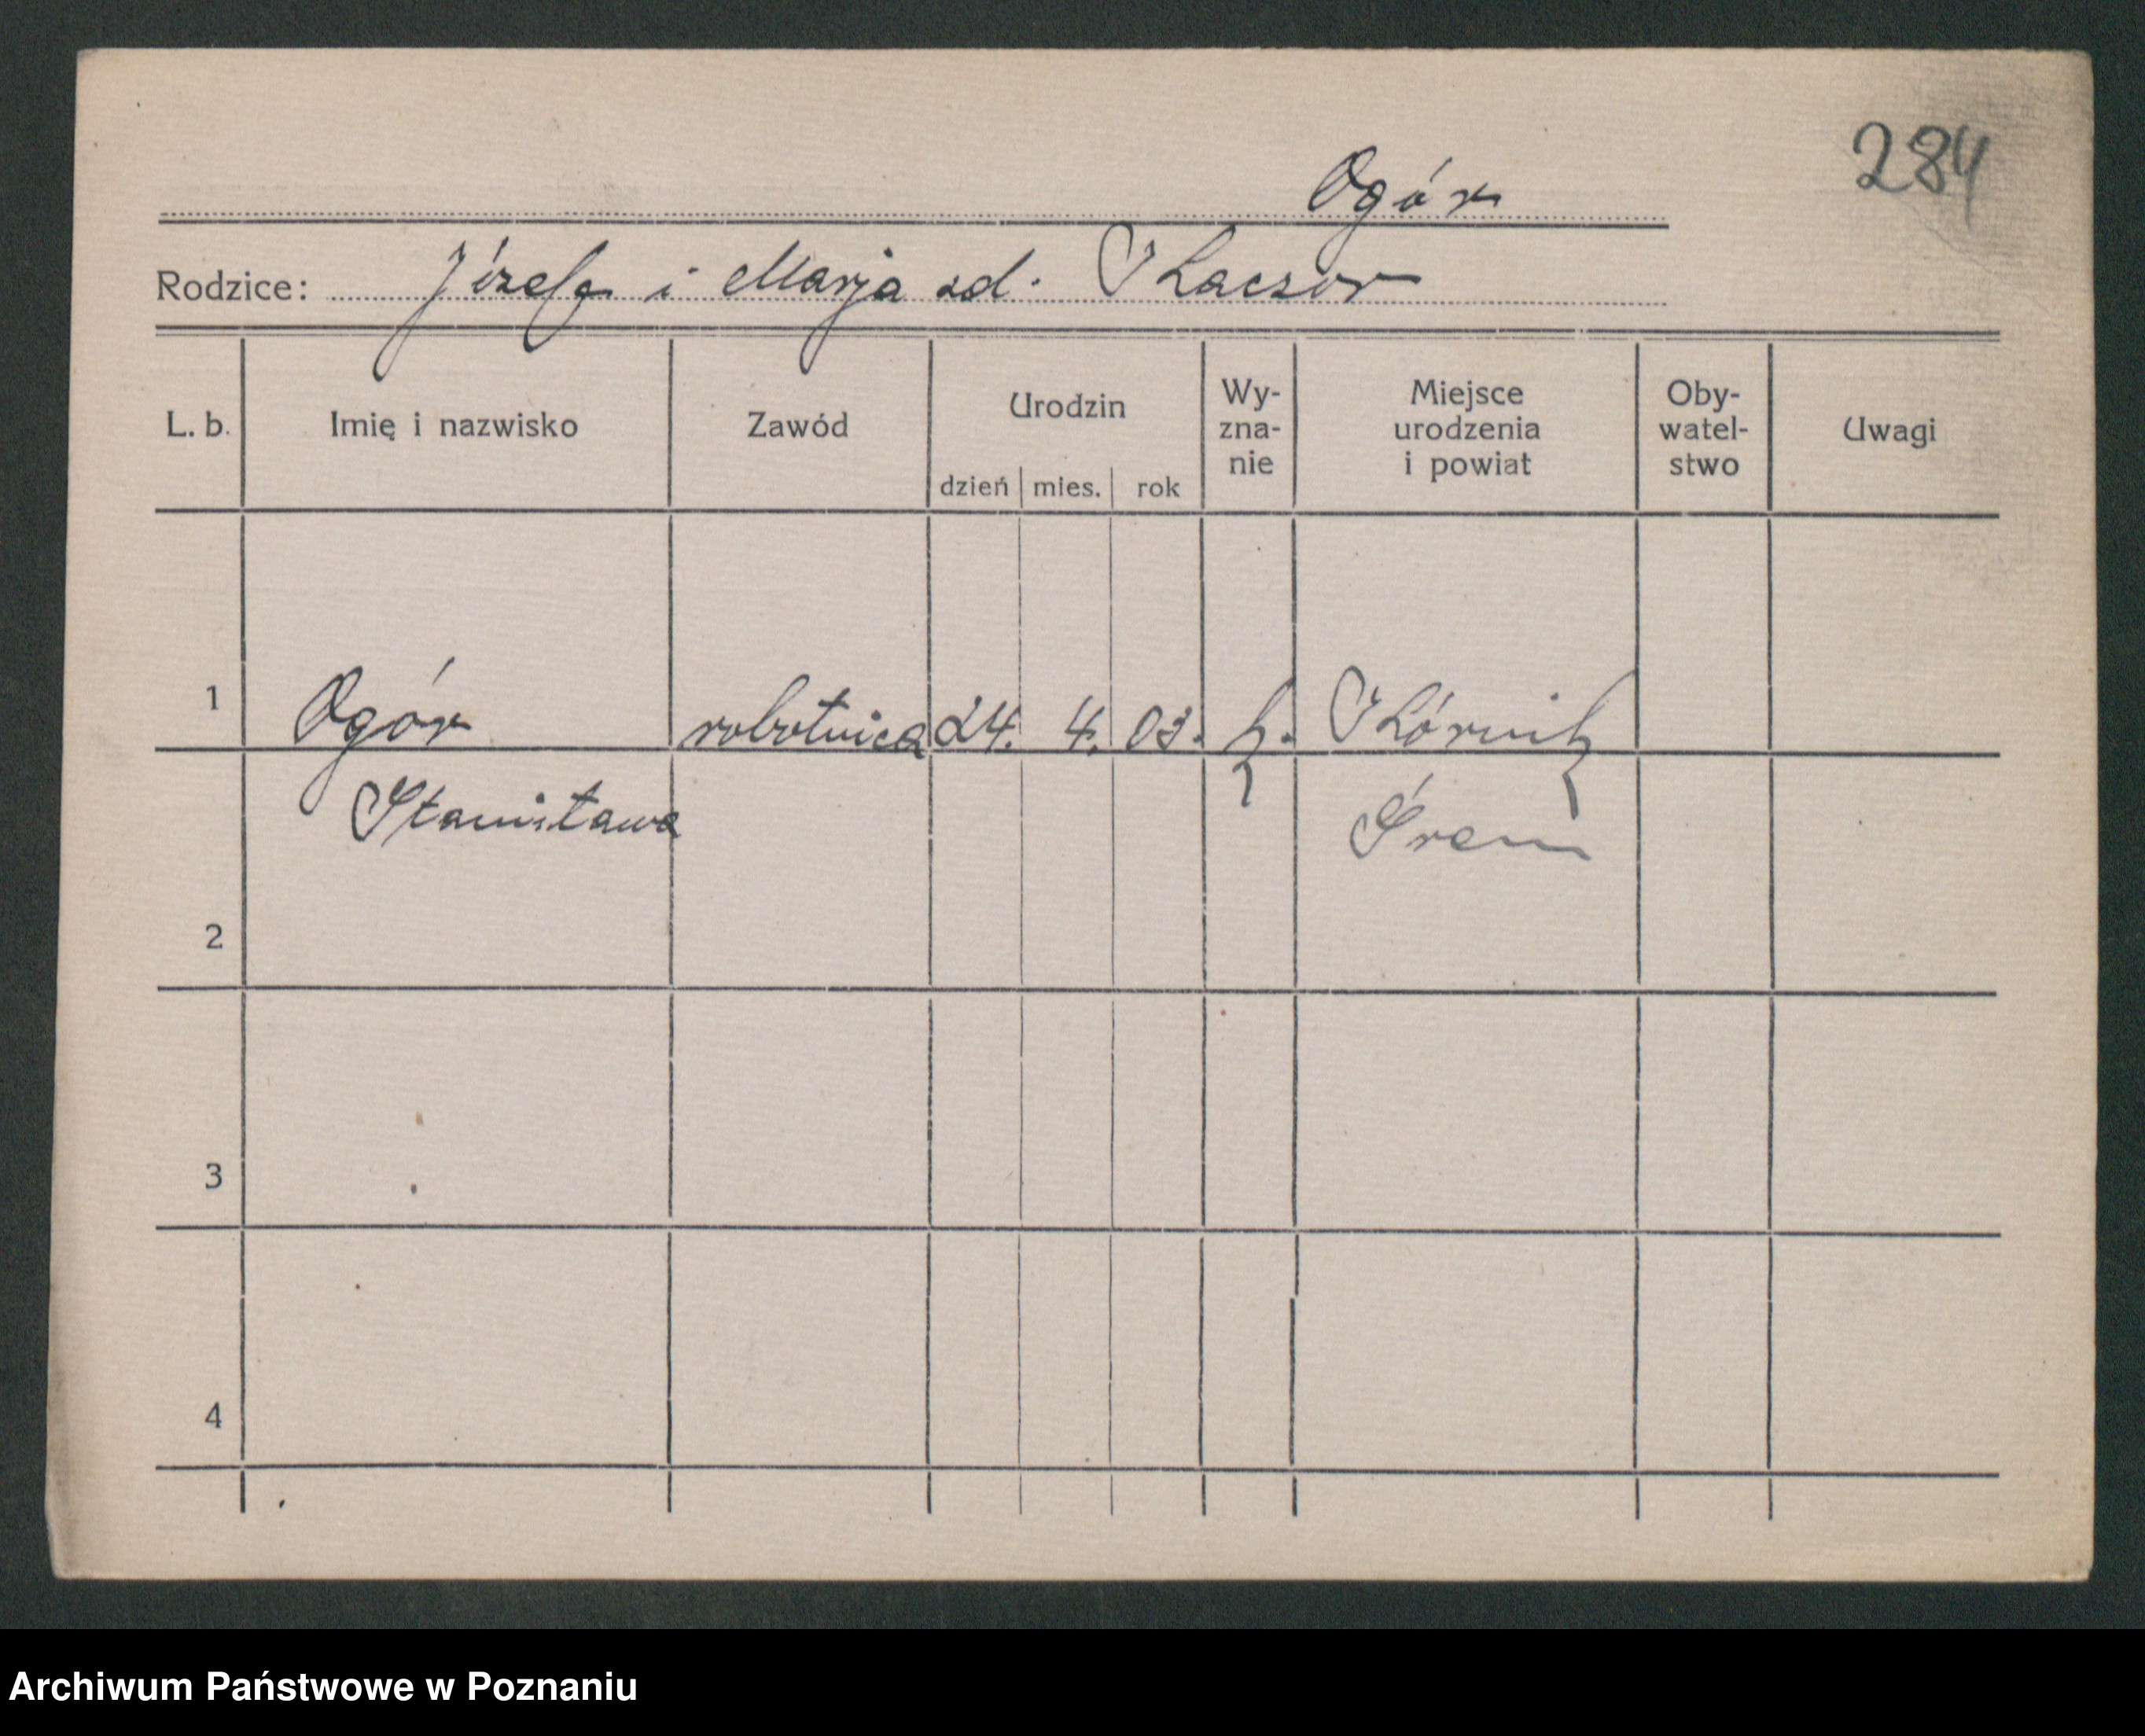 284
Ogór
Rodzice: Józef i Marja zd. Kaczor
L. b. Imię i nazwisko Zawód Urodzin dzień mies. rok Wy-zna-nie Miejsce urodzenia i powiat Oby-watel-stwo Uwagi
1 Ogór robotnica 24. 4. 03. k. Kórnik
Stanisława Śrem
2
3
4
Archiwum Państwowe w Poznaniu